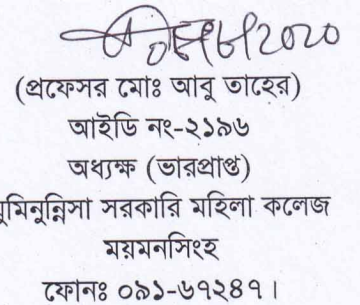 (প্রফেসর মোঃ আবু তাহের)
আইডি নং-২১৯৬
অধ্যক্ষ (ভারপ্রাপ্ত)
মুমিনুন্নিসা সরকারি মহিলা কলেজ
ময়মনসিংহ
ফোনঃ ০৯১-৬৭২৪৭।